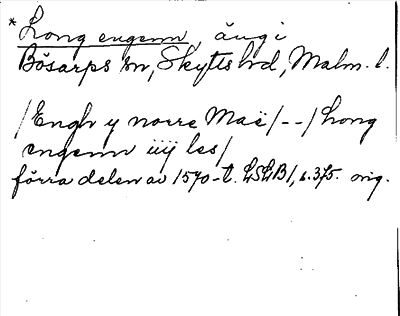 * Long engenn, äng i
Bösarps sn, Skytts hd, Malm. l.
/Engh y norre Maë/--/Long
engenn iiÿ les/
förra delen av 1570-t. LSLB1, s. 375. orig.